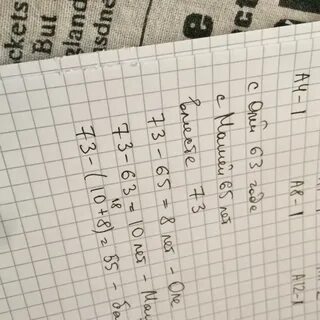 ckets
But
gland
sdne
А4-1 А8-1 А12-1
с Олей 63 года
с Машей 65 лет
вместе 73
73-65=8 лет - Оле
73-63=10 лет - Маш
18
73-(10+8)=55 - ба